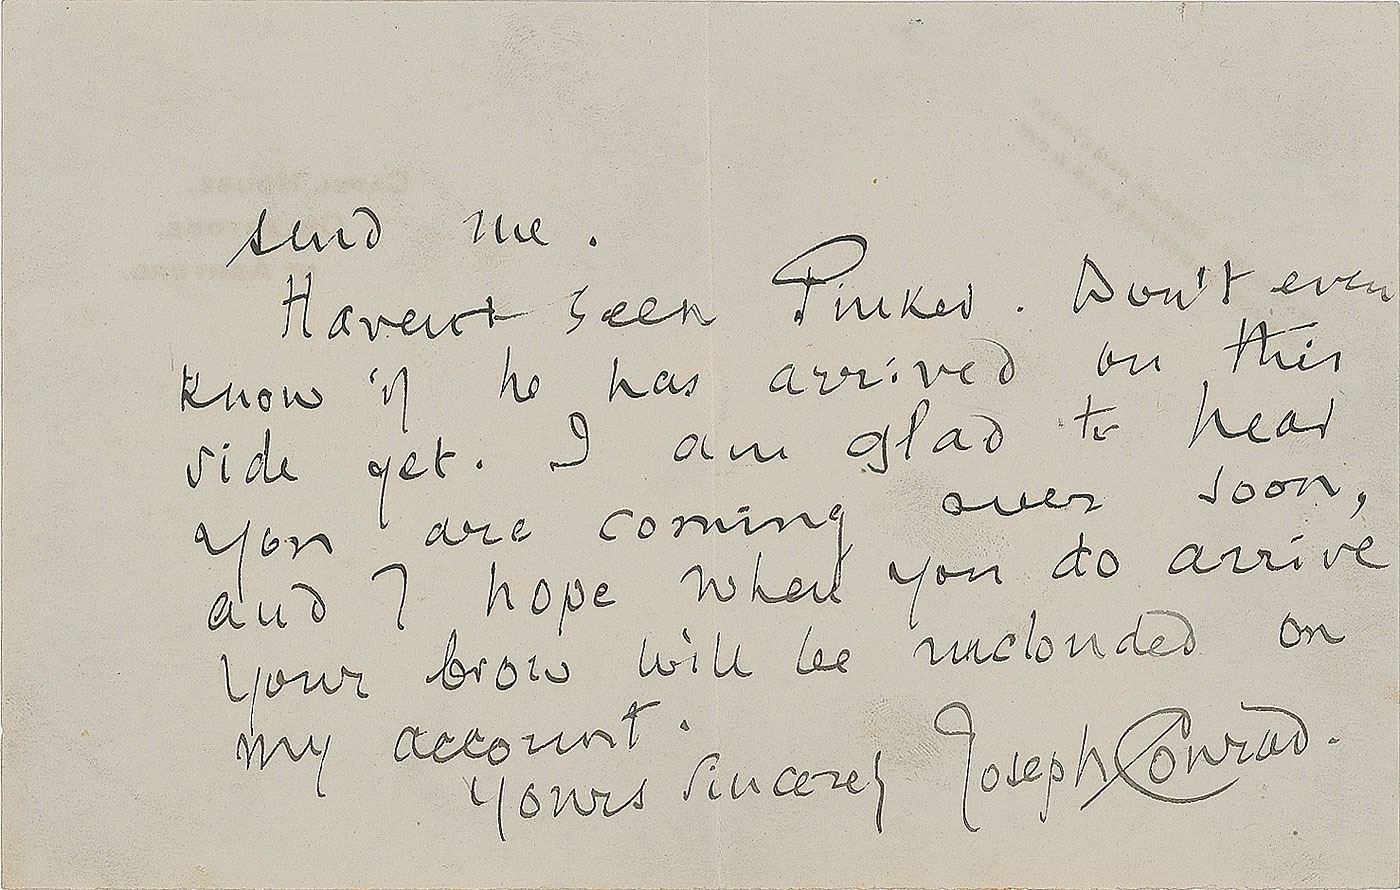 send me.
Havent seen Pinker. Don't even
know if he has arrived on this
side yet. I am glad to hear
you are coming over soon,
and I hope when you do arrive
your brow will be unclouded on
my account.
Yours sincerely Joseph Conrad.